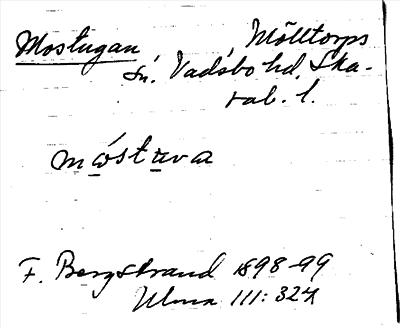 Mostugan Mölltorps
sn. Vadsbo hd, Ska-
rab. l.
mo̱stu̱va
F. Bergstrand 1898-99
Ulma 111:324